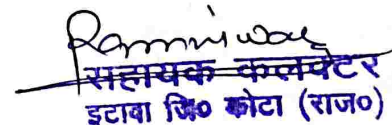 Ramniwas
सहायक कलक्टर
इटावा जि० कोटा (राज०)